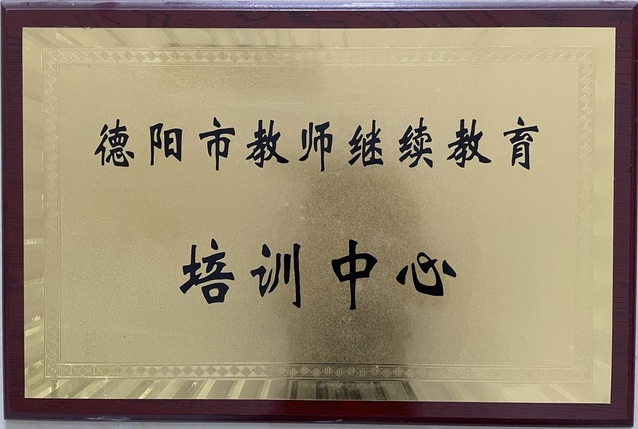 德阳市教师继续教育
培训中心